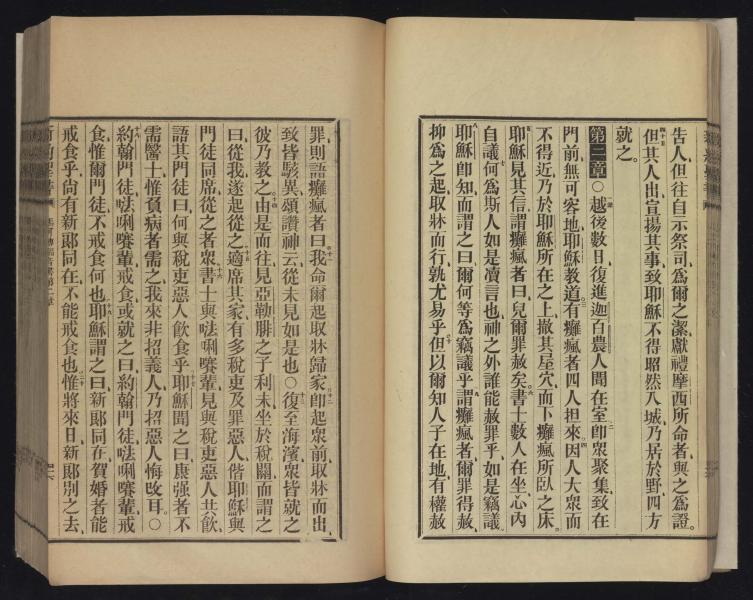 告人但往自示祭司爲爾之潔獻禮摩西所命者與之爲證。
但其人出宣揚其事致耶穌不得昭然入城乃居於野四方
就之。
第二章○越後數日復進迦百農人聞在室卽衆聚集致在
門前無可容地耶穌教道有癱瘋者四人担來因人大衆而
不得近乃於耶穌所在之上撤其屋穴而下癱瘋所臥之床。
耶穌見其信謂癱瘋者曰兒爾罪赦矣。書士數人在坐心內
自議何爲斯人如是凟言也神之外誰能赦罪乎如是竊議
耶穌卽知而謂之曰爾何等爲竊議乎謂癱瘋者爾罪得赦
抑爲之起取牀而行孰尤易乎但以爾知人子在地有權赦
罪則語癱瘋者曰我命爾起取牀歸家卽起衆前取牀而出
致皆駭異頌讚神云從未見如是也○復至海濱衆皆就之
彼乃教之由是而往見亞勒腓之子利未坐於稅關而謂之
曰從我遂起從之適席其家有多稅吏及罪惡人偕耶穌與
門徒同席從之者衆書士與𠵽唎㘔輩見與稅吏惡人共飲
語其門徒曰何與稅吏惡人飲食乎耶穌聞之曰康强者不
需醫士惟負病者需之我來非招義人乃招惡人悔改耳。○
約翰門徒𠵽唎㘔輩戒食或就之曰約翰門徒𠵽唎㘔輩戒
食惟爾門徒不戒食何也耶穌謂之曰新郞同在賀婚者能
戒食乎尚有新郞同在不能戒食也惟將來日新郞別之去